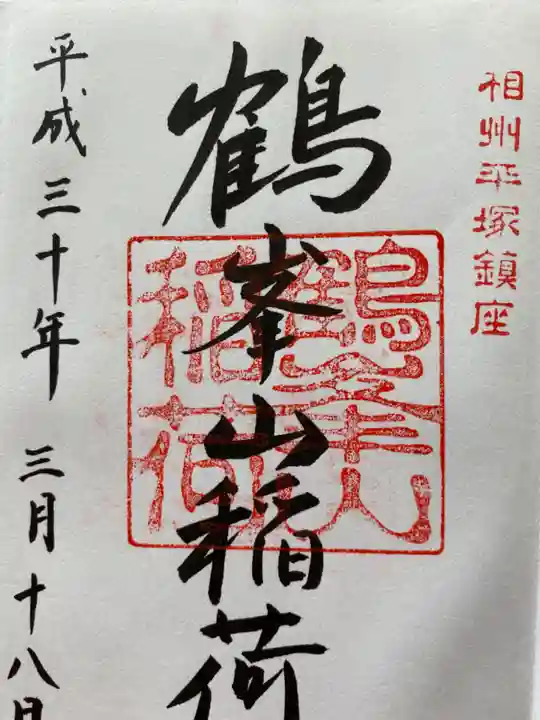 相州平塚鎮座
鶴峯山稲荷
平成三十年 三月十八日